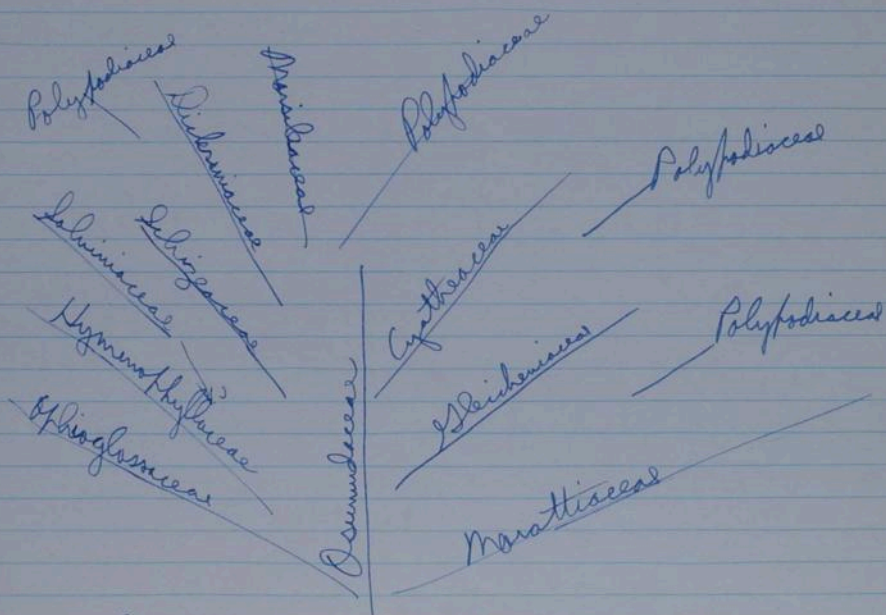 Polypodiaceae
Dicksoniaceae
Marsileaceae
Polypodiaceae
Polypodiaceae
Salviniaceae
Schizeaceae
Cyatheaceae
Hymenophyllaceae
?
Gleicheniaceae
Polypodiaceae
Ophioglossaceae
Osmundaceae
Marattiaceae